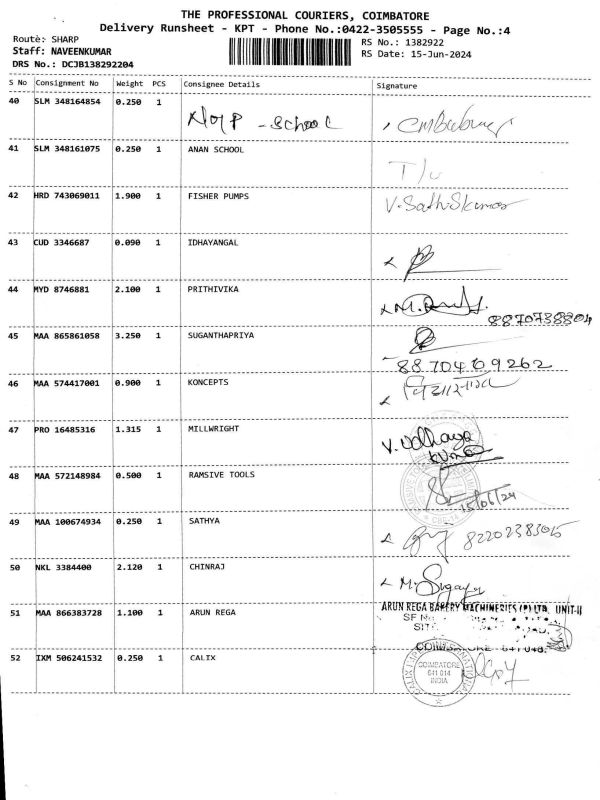 THE PROFESSIONAL COURIERS, COIMBATORE
Delivery Runsheet - KPT - Phone No.:0422-3505555 - Page No.:4
Route: SHARP
RS No.: 1382922
Staff: NAVEENKUMAR
RS Date: 15-Jun-2024
DRS No.: DCJB138292204
S No Consignment No Weight PCS Consignee Details Signature
40 SLM 348164854 0.250 1 - School
41 SLM 348161075 0.250 1 ANAN SCHOOL
42 HRD 743069011 1.900 1 FISHER PUMPS V.Sathiskumar
43 CUD 3346687 0.090 1 IDHAYANGAL
44 MYD 8746881 2.100 1 PRITHIVIKA
8870738804
45 MAA 865861058 3.250 1 SUGANTHAPRIYA
8870409262
46 MAA 574417001 0.900 1 KONCEPTS
47 PRO 16485316 1.315 1 MILLWRIGHT V. Udhaya
kumar
48 MAA 572148984 0.500 1 RAMSIVE TOOLS
15/06/24
49 MAA 100674934 0.250 1 SATHYA
50 NKL 3384400 2.120 1 CHINRAJ
51 MAA 866383728 1.100 1 ARUN REGA ARUN REGA BAKERY MACHINERIES (P) LTD, UNIT-II
SF No
COIMBATORE - 641 048.
52 IXM 506241532 0.250 1 CALIX
COIMBATORE
641 014
INDIA